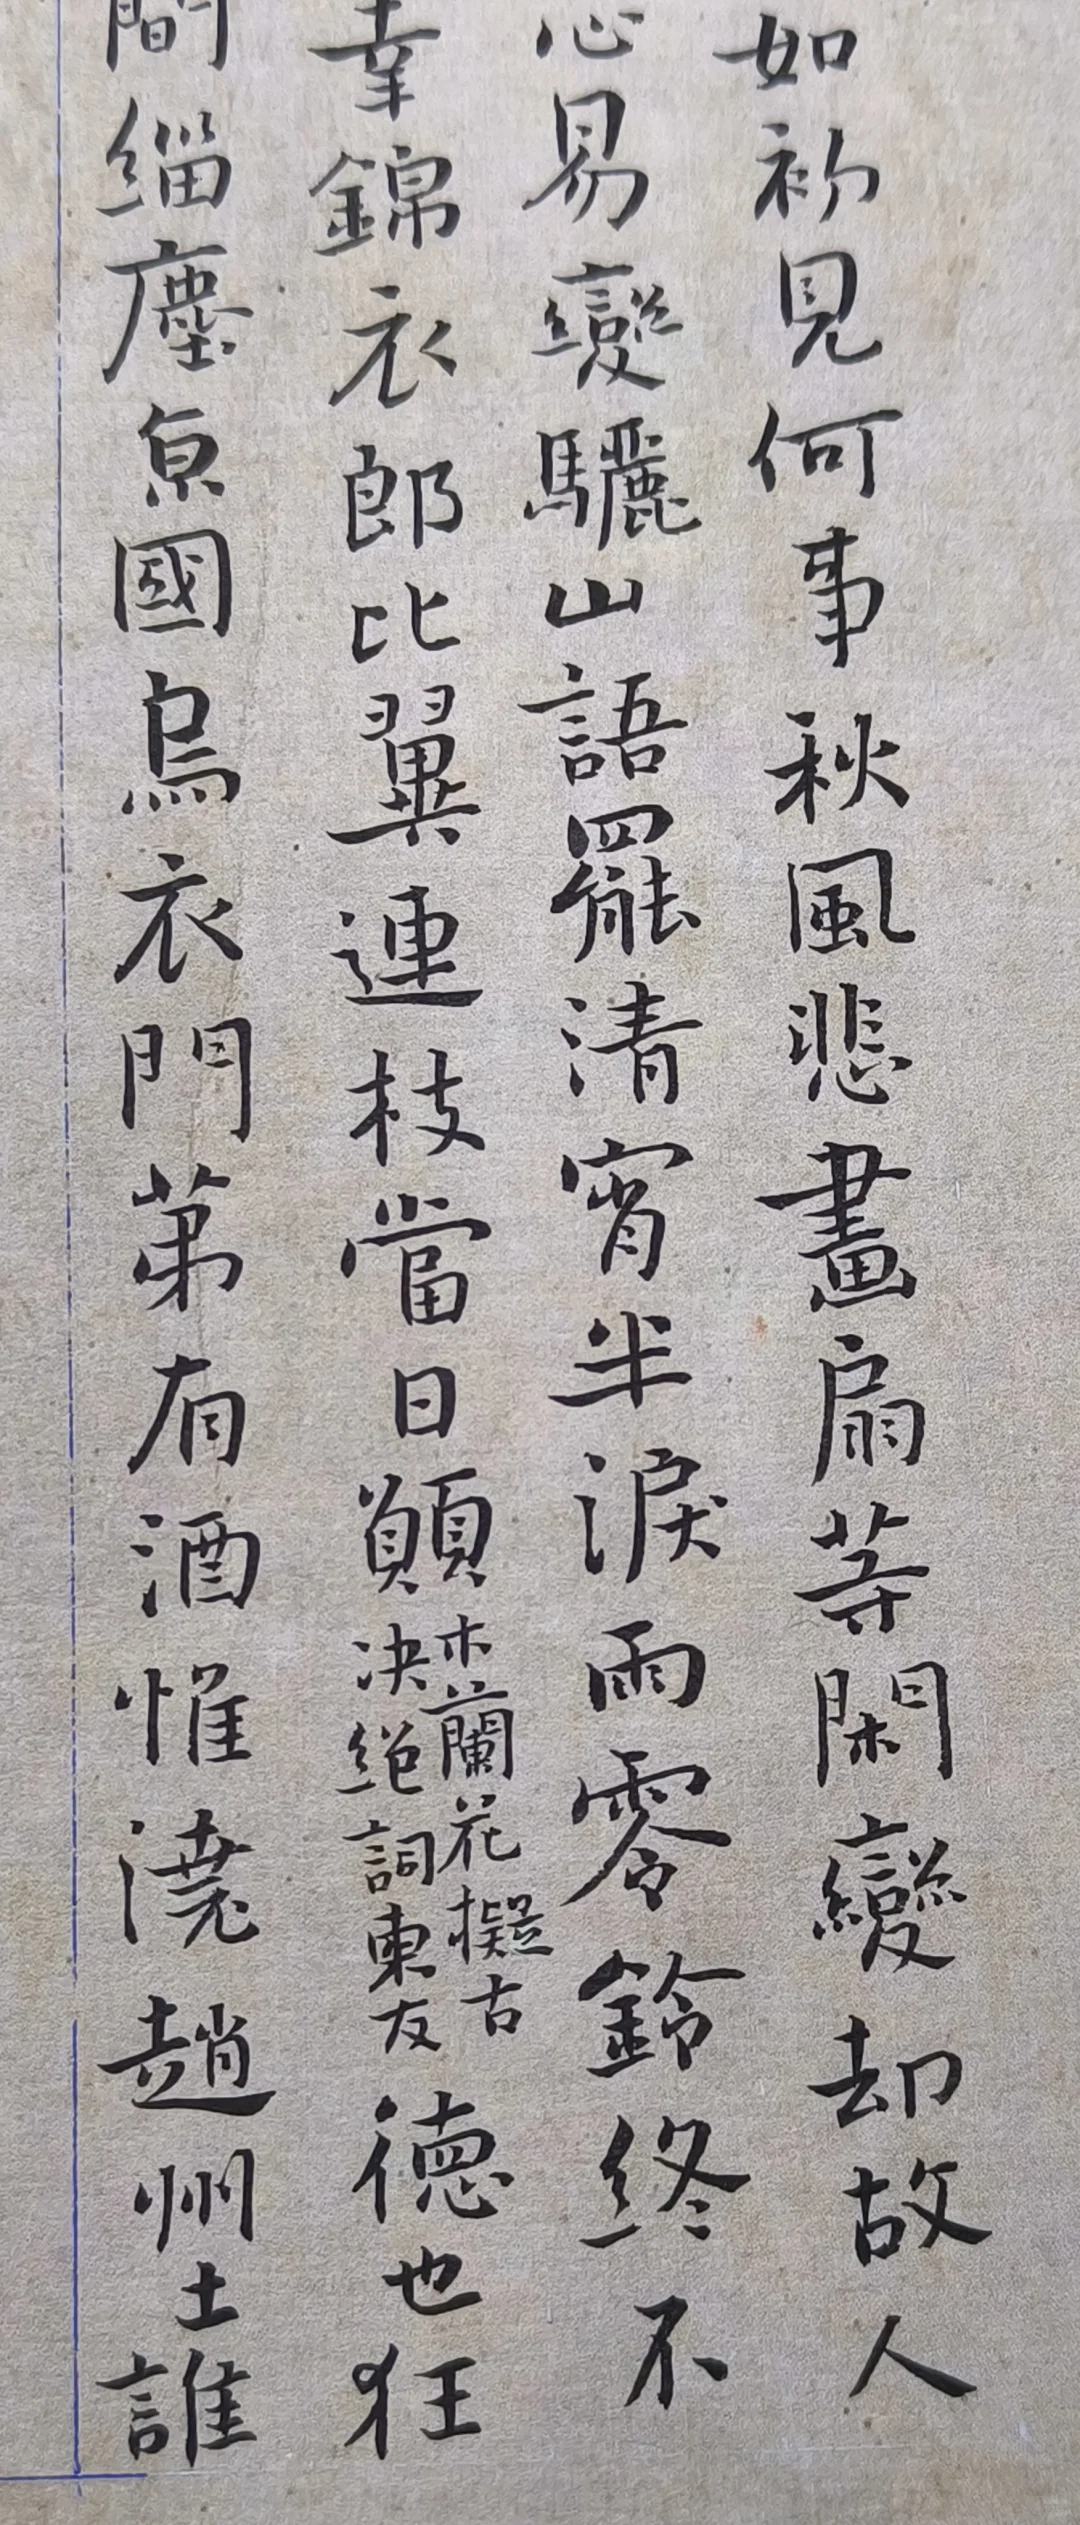 如初見何事秋風悲畫扇等閑變却故人
心易變驪山語罷清宵半淚雨零鈴終不
幸錦衣郎比翼連枝當日願
木蘭花擬古
决絕詞柬友
德也狂
間緇塵京國烏衣門第有酒惟澆趙州土誰